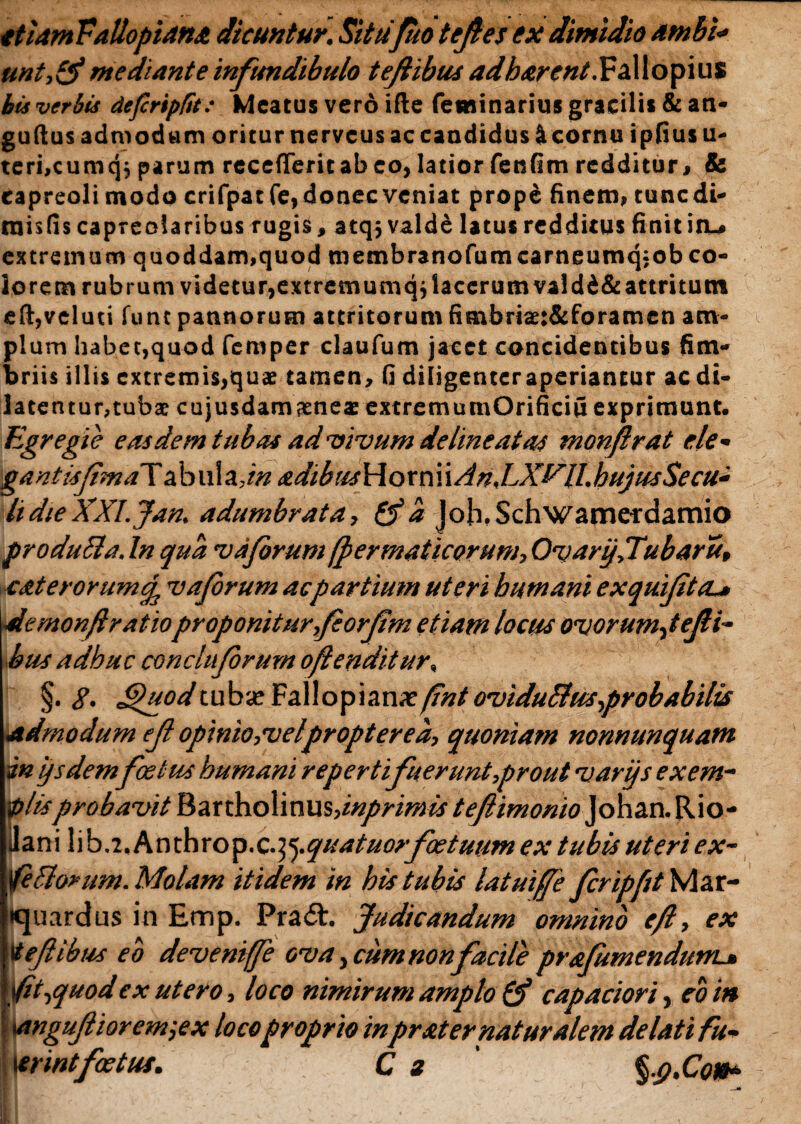 etiam Fallopianæ dicuntur. Situ suo testes ex dimidio ambi-
unt, & mediante infundibulo testibus adhærent. Fallopius
his verbis descripsit: Meatus verò iste seminarius gracilis & an-
gustus admodum oritur nerveus ac candidus à cornu ipsius u-
teri, cumq; parum recesserit ab eo, latior sensim redditur, &
capreoli modo crispat se, donec veniat propè finem, tunc di-
misfis capreolaribus rugis, atq; valdè latus redditus finit in
extremum quoddam, quod membranosum carneumq; ob co-
lorem rubrum videtur, extremumq; lacerum valdè & attritum
est, veluti sunt pannorum attritorum fimbriæ: & foramen am-
plum habet, quod semper clausum jacet concidentibus fim-
briis illis extremis, quæ tamen, si diligenter aperiantur ac di-
latentur, tubæ cujusdam æneæ extremum Orificiū exprimunt.
Egregie easdem tubas ad vivum delineatas monstrat ele-
gantissima Tabula, in ædibus Hornii An. LXVII. hujus Secu-
li die XXI. Jan. adumbrata, & à Joh. Schwamerdamio
producta. In quâ vasorum spermaticorum, Ovarij, Tubarū,
cæterorumq; vasorum ac partium uteri humani exquisita
demonstratio proponitur, seorsim etiam locus ovorum, testi-
bus adhuc conclusorum ostenditur.
§. 8. Quod tubæ Fallopianæ sint oviductus, probabilis
admodum est opinio, vel propterea, quoniam nonnunquam
in ijsdem fœtus humani reperti fuerunt, prout varijs exem-
plis probavit Bartholinus, inprimis testimonio Johan. Rio-
lani lib. 2. Anthrop. c. 35. quatuor fœtuum ex tubis uteri ex-
sectorum. Molam itidem in his tubis latuisse scripsit Mar-
quardus in Emp. Pract. Judicandum omnino est, ex
testibus eò devenisse ova, cùm non facilè præsumendum
sit, quod ex utero, loco nimirum amplo & capaciori, eò in
angustiorem; ex loco proprio in præternaturalem delati fu-
erint fœtus.
C 2 §. 9. Con-